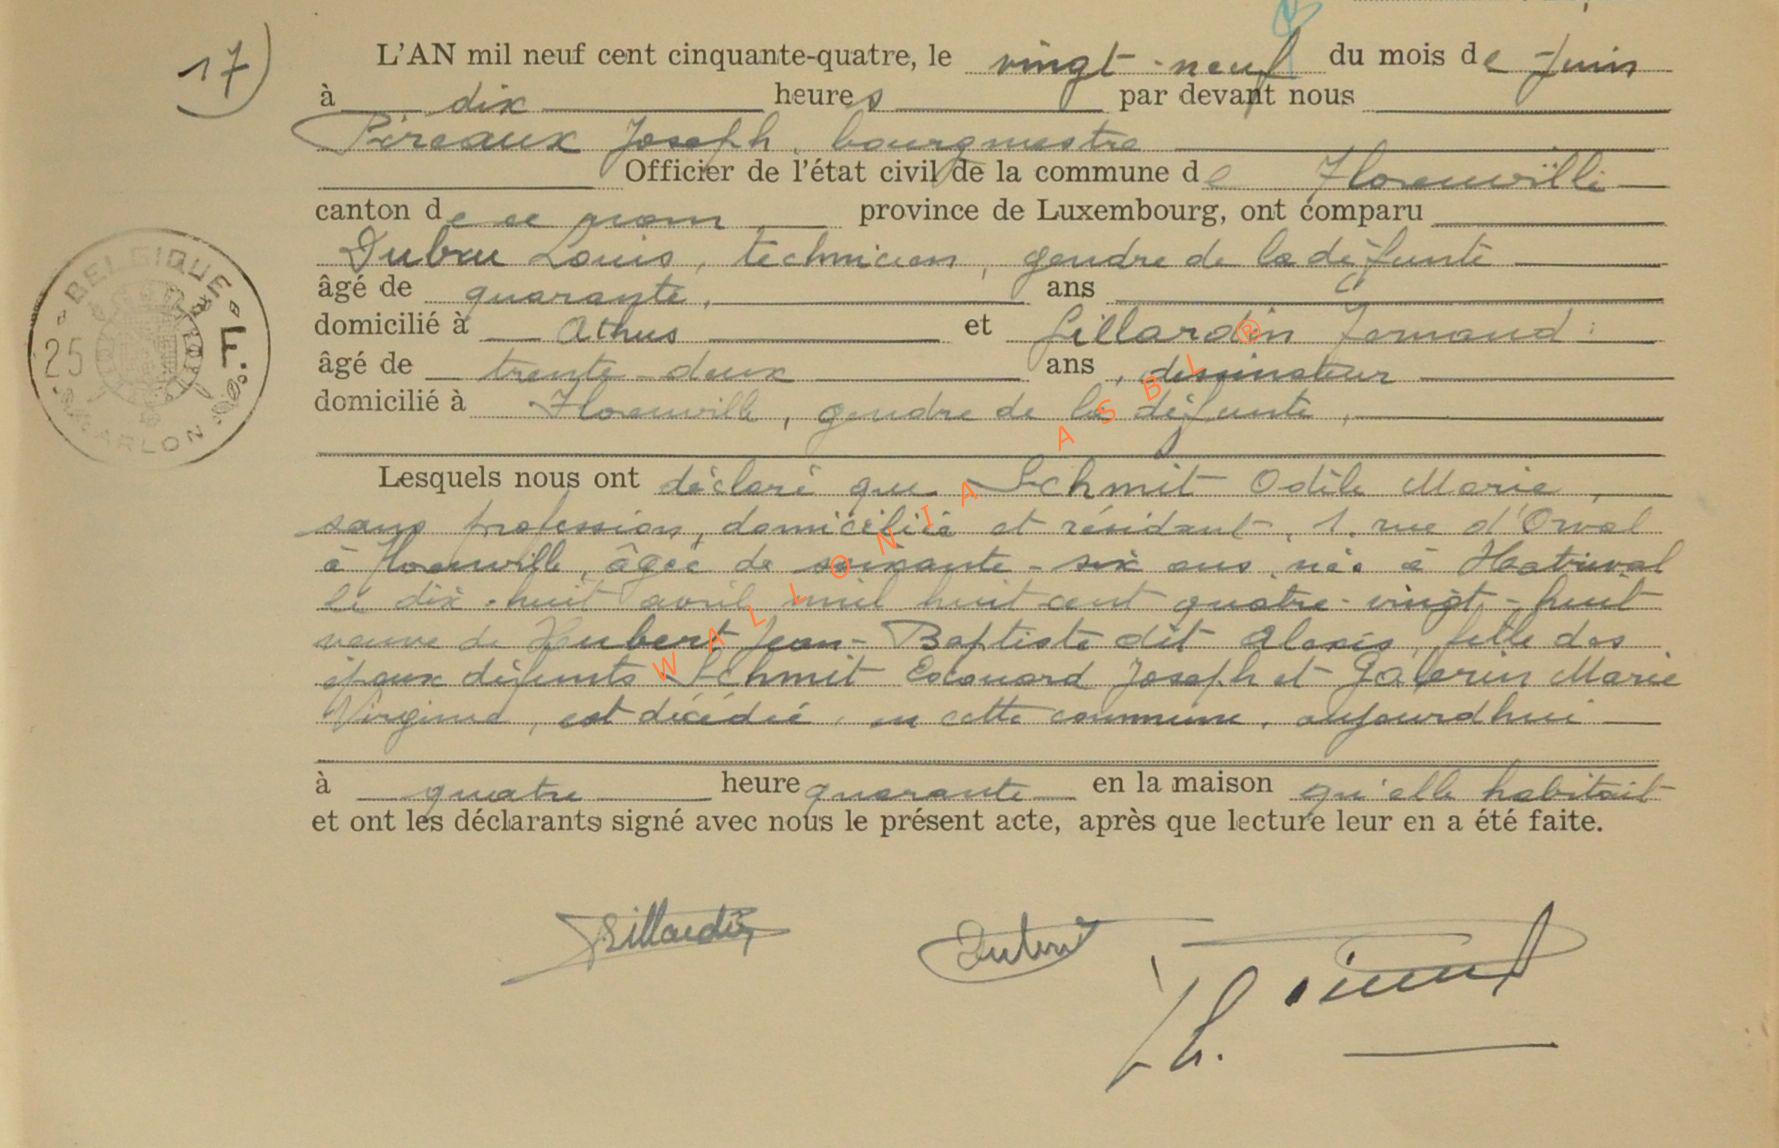 17)
L'AN mil neuf cent cinquante-quatre, le vingt-neuf du mois de Juin
à dix heures par devant nous
Pireaux Joseph, bourgmestre
Officier de l'état civil de la commune de Florenville
canton de ce nom province de Luxembourg, ont comparu
Dubru Louis, technicien, gendre de la défunte
âgé de quarante, ans
domicilié à Athus et Gillardin Fernand
âgé de trente-deux ans, dessinateur
domicilié à Florenville, gendre de la défunte,
Lesquels nous ont déclaré que Schmit Odile Marie,
sans profession, domiciliée et résidant, 1, rue d'Orval
à Florenville, âgée de soixante-six ans, née à Hatrival
le dix-huit avril mil huit cent quatre-vingt-huit
veuve de Hubert Jean-Baptiste dit Alexis, fille des
époux défunts Schmit Edouard Joseph et Galerin Marie
Virginie, est décédée, en cette commune, aujourd'hui
à quatre heure quarante en la maison qu'elle habitait
et ont les déclarants signé avec nous le présent acte, après que lecture leur en a été faite.
BELGIQUE
25 F.
ARLON
WALLONIA ASBL ®
Gillardin